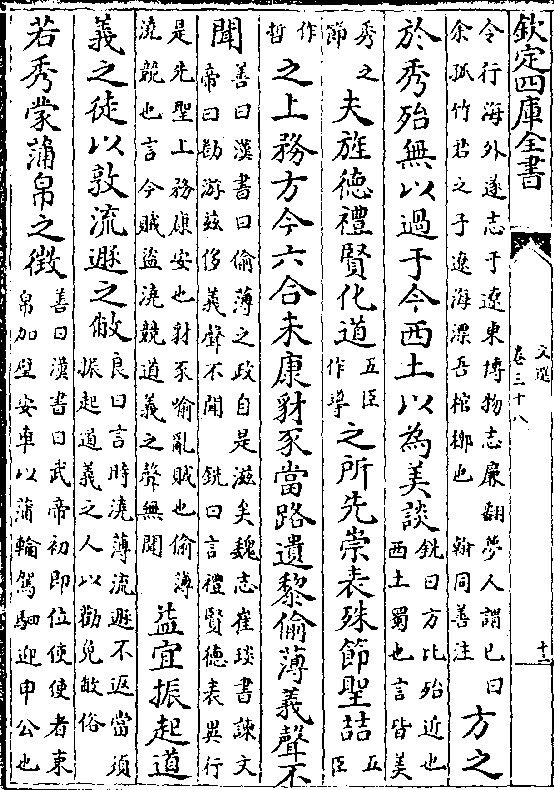 欽定四庫全書
文選
卷三十八
十二
令行海外遂志于遼東博物志廉翻夢人謂已曰
余孤竹君之子遼海漂吾棺槨也　翰同善注
方之
於秀殆無以過于今西土以為美談
銑曰方比殆近也
西土蜀也言皆美
秀之
節
夫旌德禮賢化道
五臣
作導
之所先崇表殊節聖喆
五臣
作
哲
之上務方今六合未康豺豕當路遺黎偷薄義聲不
聞
善曰漢書曰偷薄之政自是滋矣魏志崔琰書諫文
帝曰勸游玆侈義聲不聞　銑曰言禮賢德表異行
是先聖上務康安也豺豕喻亂賊也偷薄
澆競也言今賊盜澆競道義之聲無聞
益宜振起道
義之徒以敦流遯之敝
良曰言時澆薄流遯不返當須
振起道義之人以勸勉敝俗
若秀蒙蒲帛之徴
善曰漢書曰武帝初即位使使者束
帛加璧安車以蒲輪駕駟迎申公也